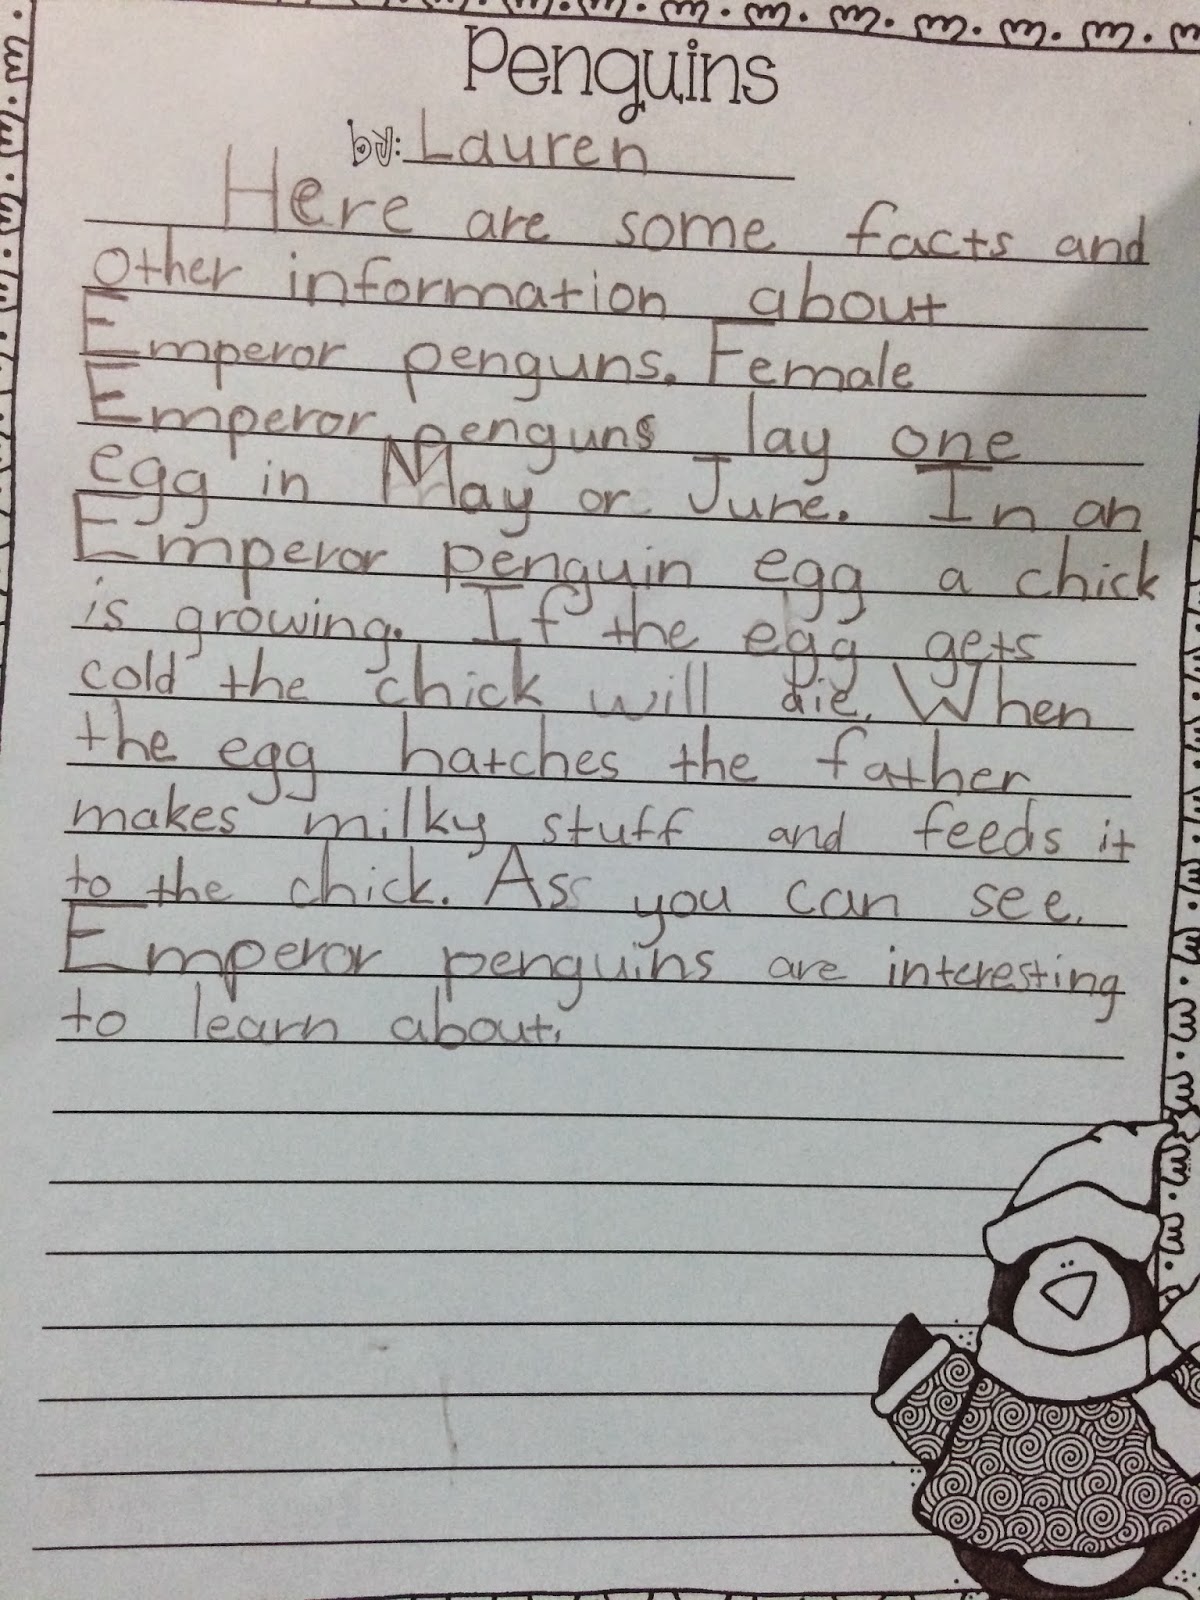 Penguins
by: Lauren
Here are some facts and
other information about
Emperor penguns. Female
Emperor penguns lay one
egg in May or June. In an
Emperor penguin egg a chick
is growing. If the egg gets
cold the chick will die. When
the egg hatches the father
makes milky stuff and feeds it
to the chick. Ass you can see.
Emperor penguins are interesting
to learn about.